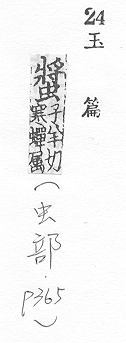 24玉篇
螿子羊切寒蟬属(虫部.p365)